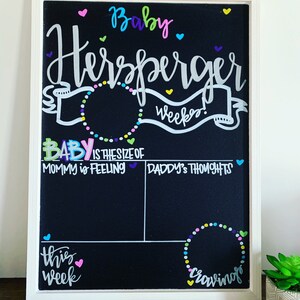 Baby
Hersperger
weeks!
BABY IS THE SIZE OF
MOMMY is FEELING
DADDY'S THOUGHTS
this
week
cravings